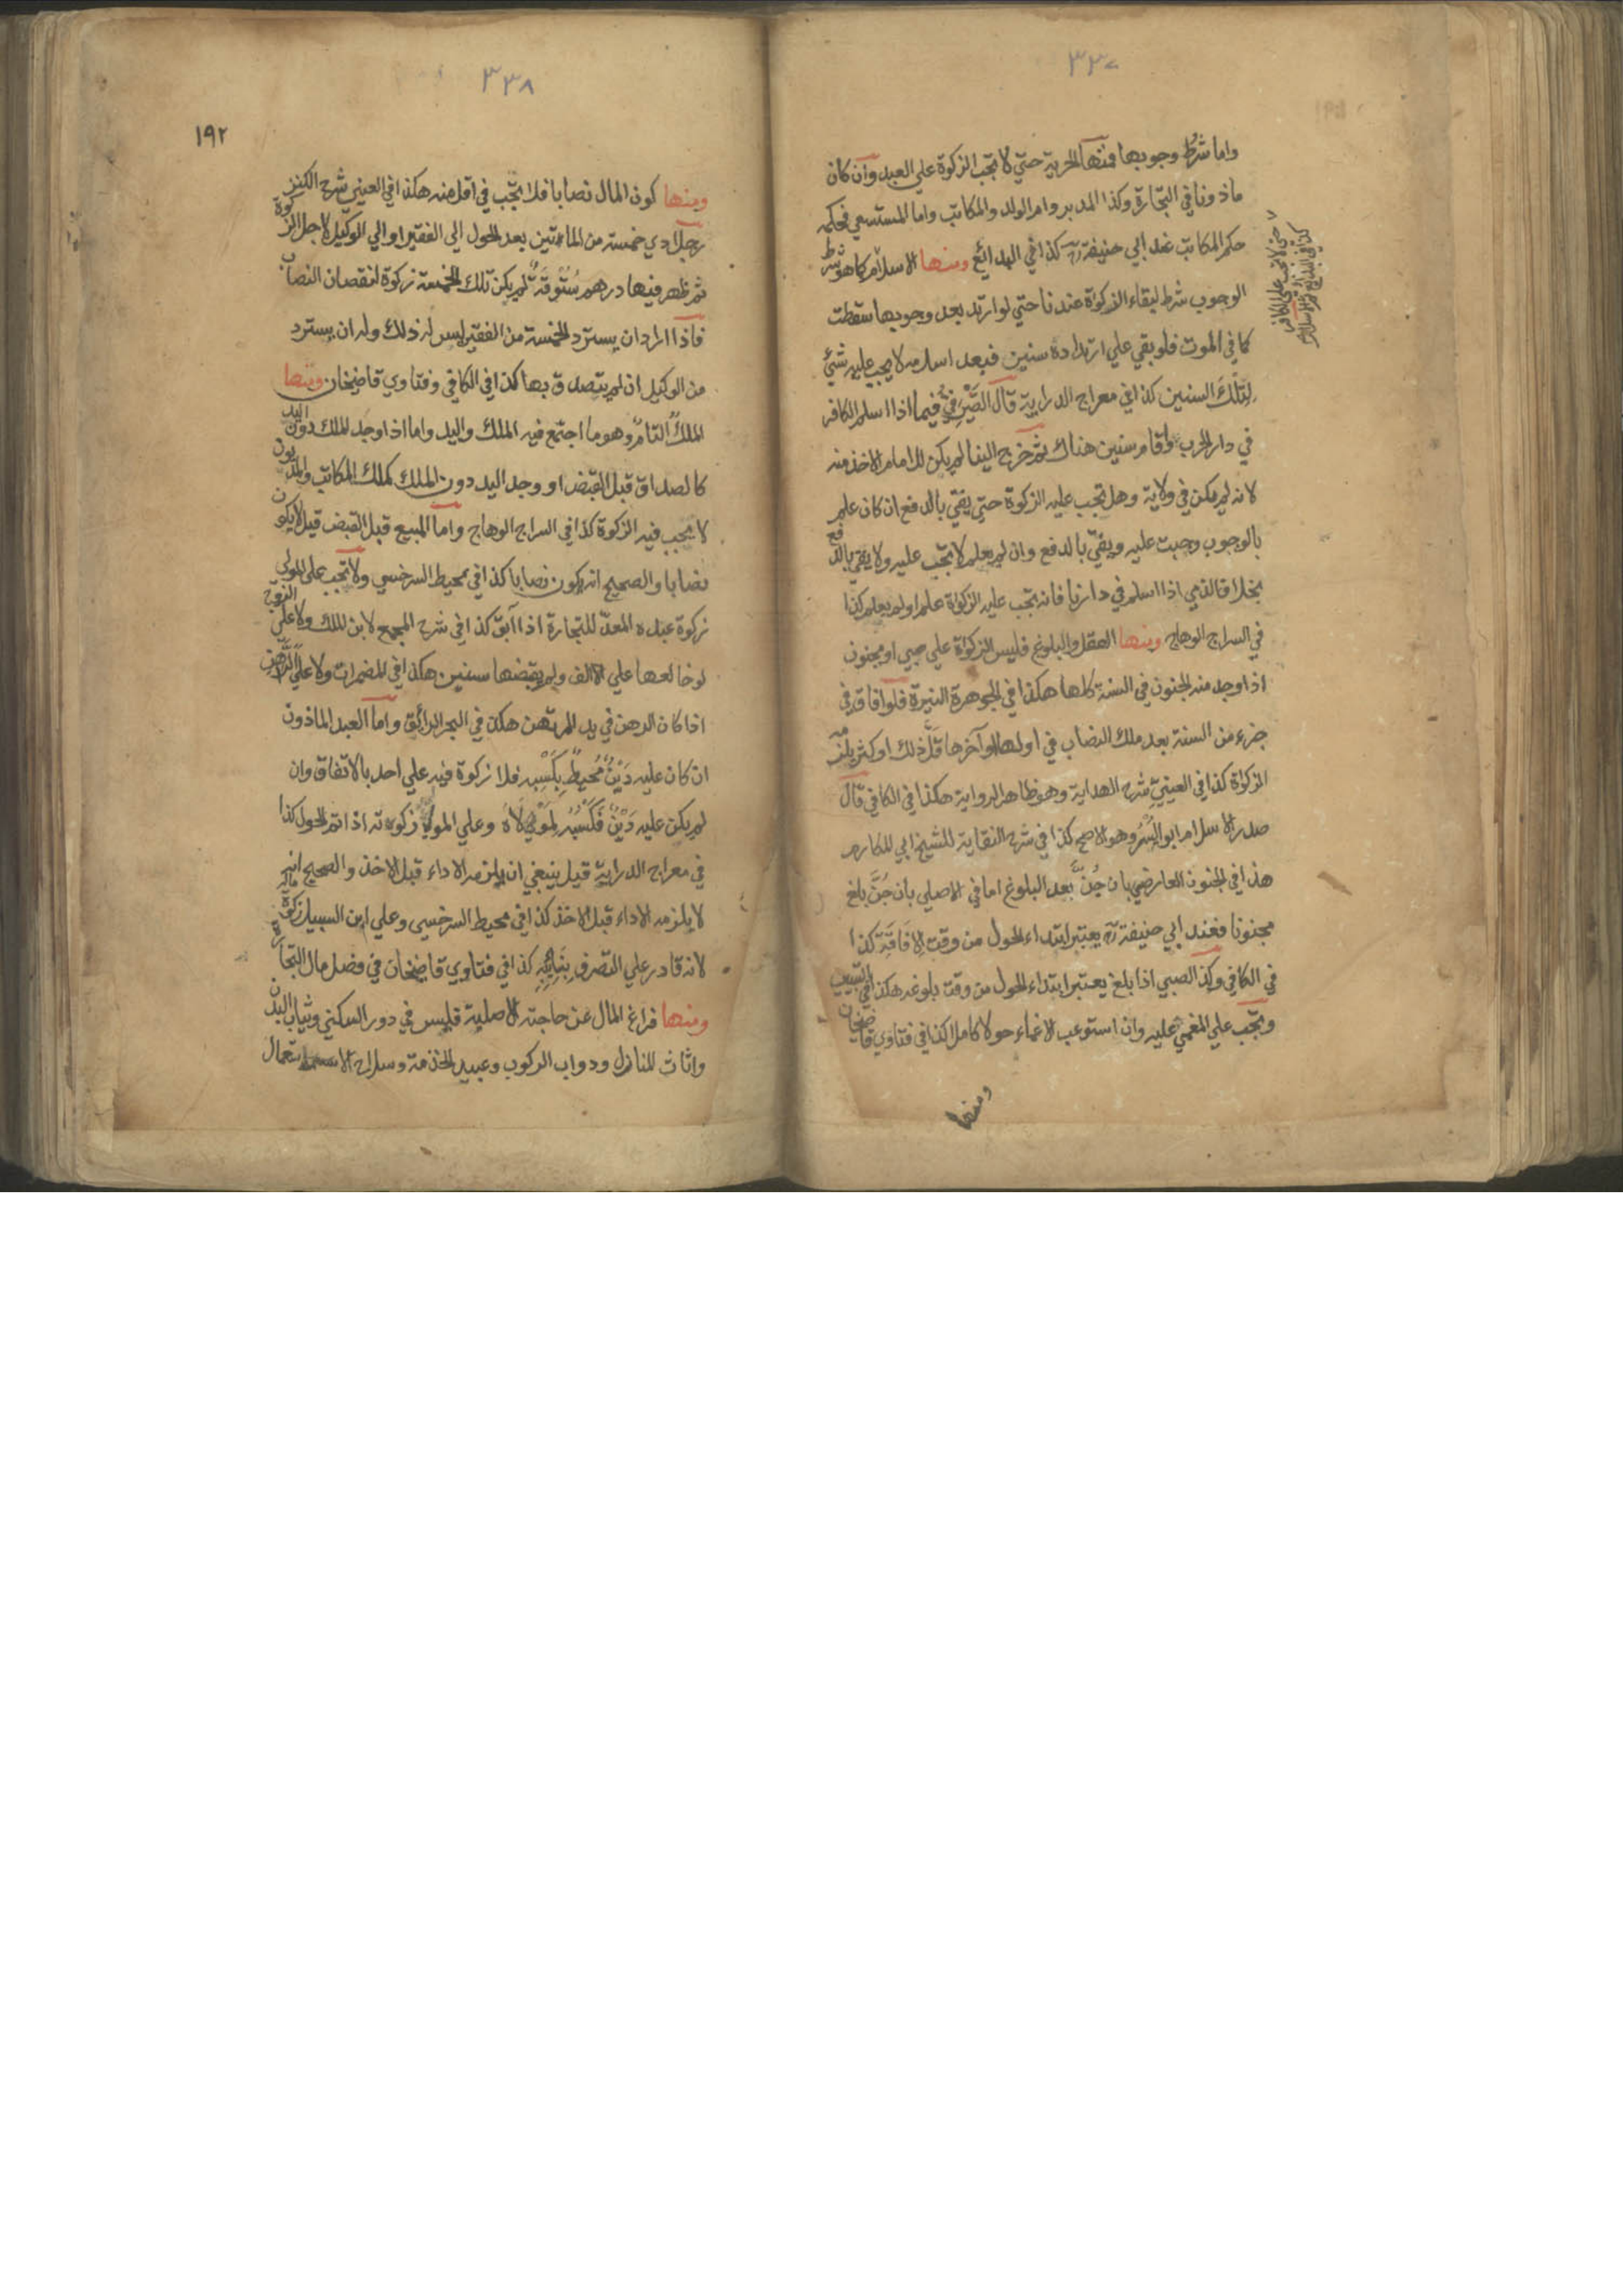 ٣٣٧
واما شرط وجوبها فمنها الحرية حتي لا تجب الزكوة علي العبد وان كان
ماذونا في التجارة وكذا المدبر وام الولد والمكاتب واما المستسعي فحكمه
حكم المكاتب عند ابي حنيفة رح كذا في البدائع ومنها الاسلام كما هو شرط
الوجوب شرط لبقاء الزكوة عندنا حتي لو ارتد بعد وجوبها سقطت
كما في الموت فلو بقي علي ارتداده سنين فبعد اسلامه لا يجب عليه شيئ
لِتلكَ السنين كذا في معراج الدراية قال الصَّيْرَفِيُّ فيما اذا اسلم الكافر
في دار الحرب واقام سنين هناك ثم خرج الينا لم يكن للامام الاخذ منه
لانه لم يكن في ولاية وهل تجب عليه الزكوة حتي يفتي بالدفع ان كان علم
بالوجوب وجبت عليه ويفتي بالدفع وان لم يعلم لا تجب عليه ولا يفتي بالدفع
بخلاف الذمي اذا اسلم في دارنا فانه تجب عليه الزكوة علم او لم يعلم كذا
في السراج الوهاج ومنها العقل والبلوغ فليس الزكوة علي صبي او مجنون
اذا وجد منه الجنون في السنة كلها هكذا في الجوهرة النيرة فلو افاق في
جزء من السنة بعد ملك النصاب في اولها او آخرها قَلَّ ذلك او كثر يلزمه
الزكوة كذا في العينيّ شرح الهداية وهو ظاهر الرواية هكذا في الكافي قال
صدر الاسلام ابو اليُسْرُ وهو الاصح كذا في شرح النقاية للشيخ ابي المكارم
هذا في الجنون العارضي بان جُنَّ بعد البلوغ اما في الاصلي بان جُنَّ بلغ
مجنونا فعند ابي حنيفة رح يعتبر ابتداء الحول من وقت الاِفَاقَةِ كذا
في الكافي وكذا الصبي اذا بلغ يعتبر ابتداء الحول من وقت بلوغه هكذا في التبيين
وتجب علي المغمي عليه وان استوعب الاغماء حولا كاملا كذا في فتاوي قاضيخان
ومنها
حتي لا تجب علي الكافر
كذا في البدائع ثم الاسلام
٣٣٨
١٩٢
ومنها كون المال نصابا فلا تجب في اقل منه هكذا في العيني شرح الكنز
رجل ادي خمسة من المائتين بعد الحول الي الفقير او الي الوكيل لاجل الزكوة
ثم ظهر فيها درهم سُتُوقَةٌ لم يكن تلك الخمسة زكوة لنقصان النصاب
فاذا اراد ان يسترد الخمسة من الفقير ليس له ذلك وله ان يسترد
من الوكيل ان لم يتصدق بها كذا في الكافي وفتاوي قاضيخان ومنها
الملك التام وهو ما اجتمع فيه الملك واليد واما اذا وجد الملك دون اليد
كالصداق قبل القبض او وجد اليد دون الملك كملك المكاتب والمديون
لا يجب فيه الزكوة كذا في السراج الوهاج واما المبيع قبل القبض قيل لا يكون
نصابا والصحيح انه يكون نصابا كذا في محيط السرخسي ولا تجب علي المولي
زكوة عبده المعدّ للتجارة اذا آبق كذا في شرح المجمع لابن الملك ولا علي الزوج
لو خالعها علي الالف ولم يقبضها سنين هكذا في المضمرات ولا علي الرَّاهِنِ
اذا كان الرهن في يد المرتهن هكذا في البحر الرائق واما العبد الماذون
ان كان عليه دَيْنٌ مُحيطٌ بِكَسْبِه فلا زكوة فيه علي احد بالاتفاق وان
لم يكن عليه دَيْنٌ فَكَسْبُه لِمَوْلَاهُ وعلي المولي زكوته اذا تم الحول كذا
في معراج الدراية قيل ينبغي ان يلزمه الاداء قبل الاخذ والصحيح انه
لا يلزمه الاداء قبل الاخذ كذا في محيط السرخسي وعلي ابن السبيل زكوة ماله
لانه قادر علي التصرف بِنَائِبِهِ كذا في فتاوي قاضيخان في فصل مال التجارة
ومنها فراغ المال عن حاجته الاصلية فليس في دور السكني وثياب البدن
واثاث المنازل ودواب الركوب وعبيد الخدمة وسلاح الاستعمال